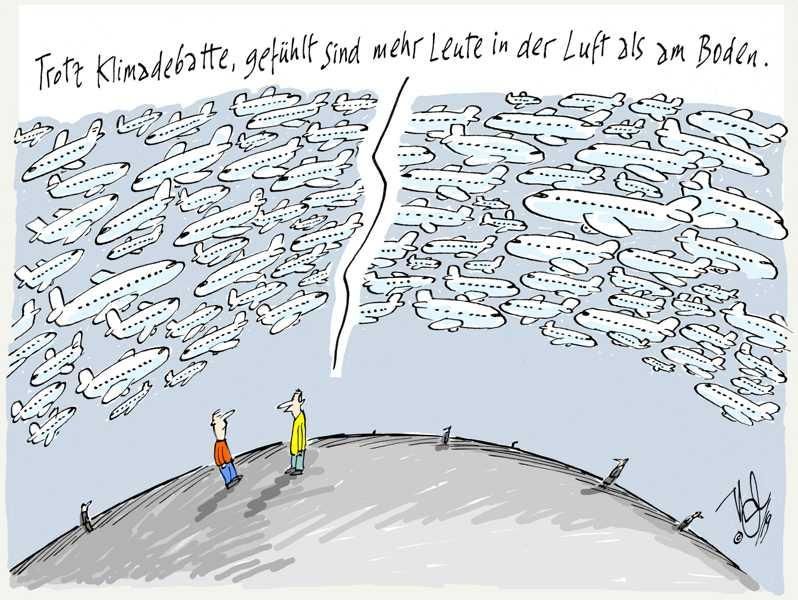 Trotz Klimadebatte, gefühlt sind mehr Leute in der Luft als am Boden.